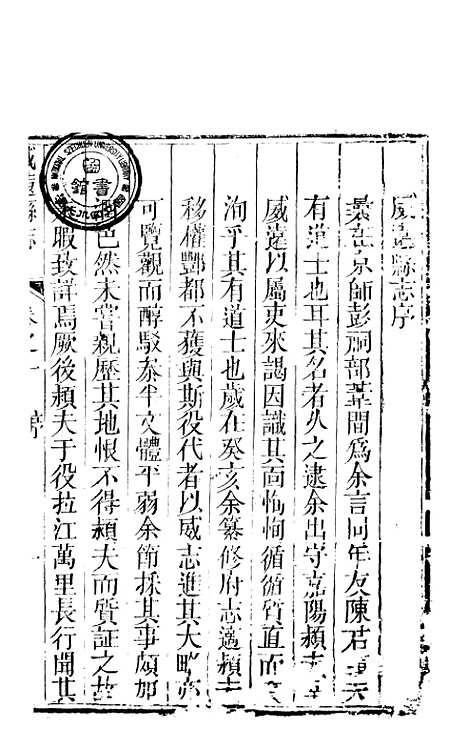 威遠縣志序
曩在京師彭祠部葦間爲余言同年友陳君
有道士也耳其名者久之逮余出守嘉陽頴夫
威遠以屬吏來謁因識其面恂恂循循質直而
洵乎其有道士也歲在癸亥余纂修府志適頴夫
移權酆都不獲與斯役代者以威志進其大畧亦
可覽觀而醇駁叅半文體平弱余節採其事頗加
邑然未嘗親歷其地恨不得頴夫而質証之故
暇致詳焉厥後頴夫于役拉江萬里長行聞其
威遠縣志
卷之一
序
一